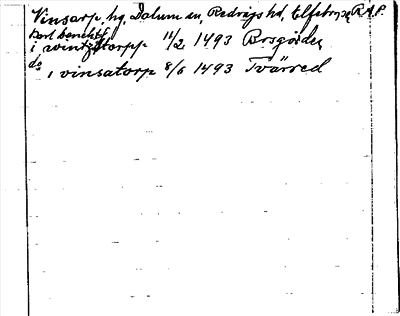 Vinsarp, hg, Dalum sn, Redvägs hd, Elfsborgs l. RAP.
Karl benchtss
i wintzstorpp 14/2 1493 Bosgården
do i vinsatorp 8/6 1493 Tvärred